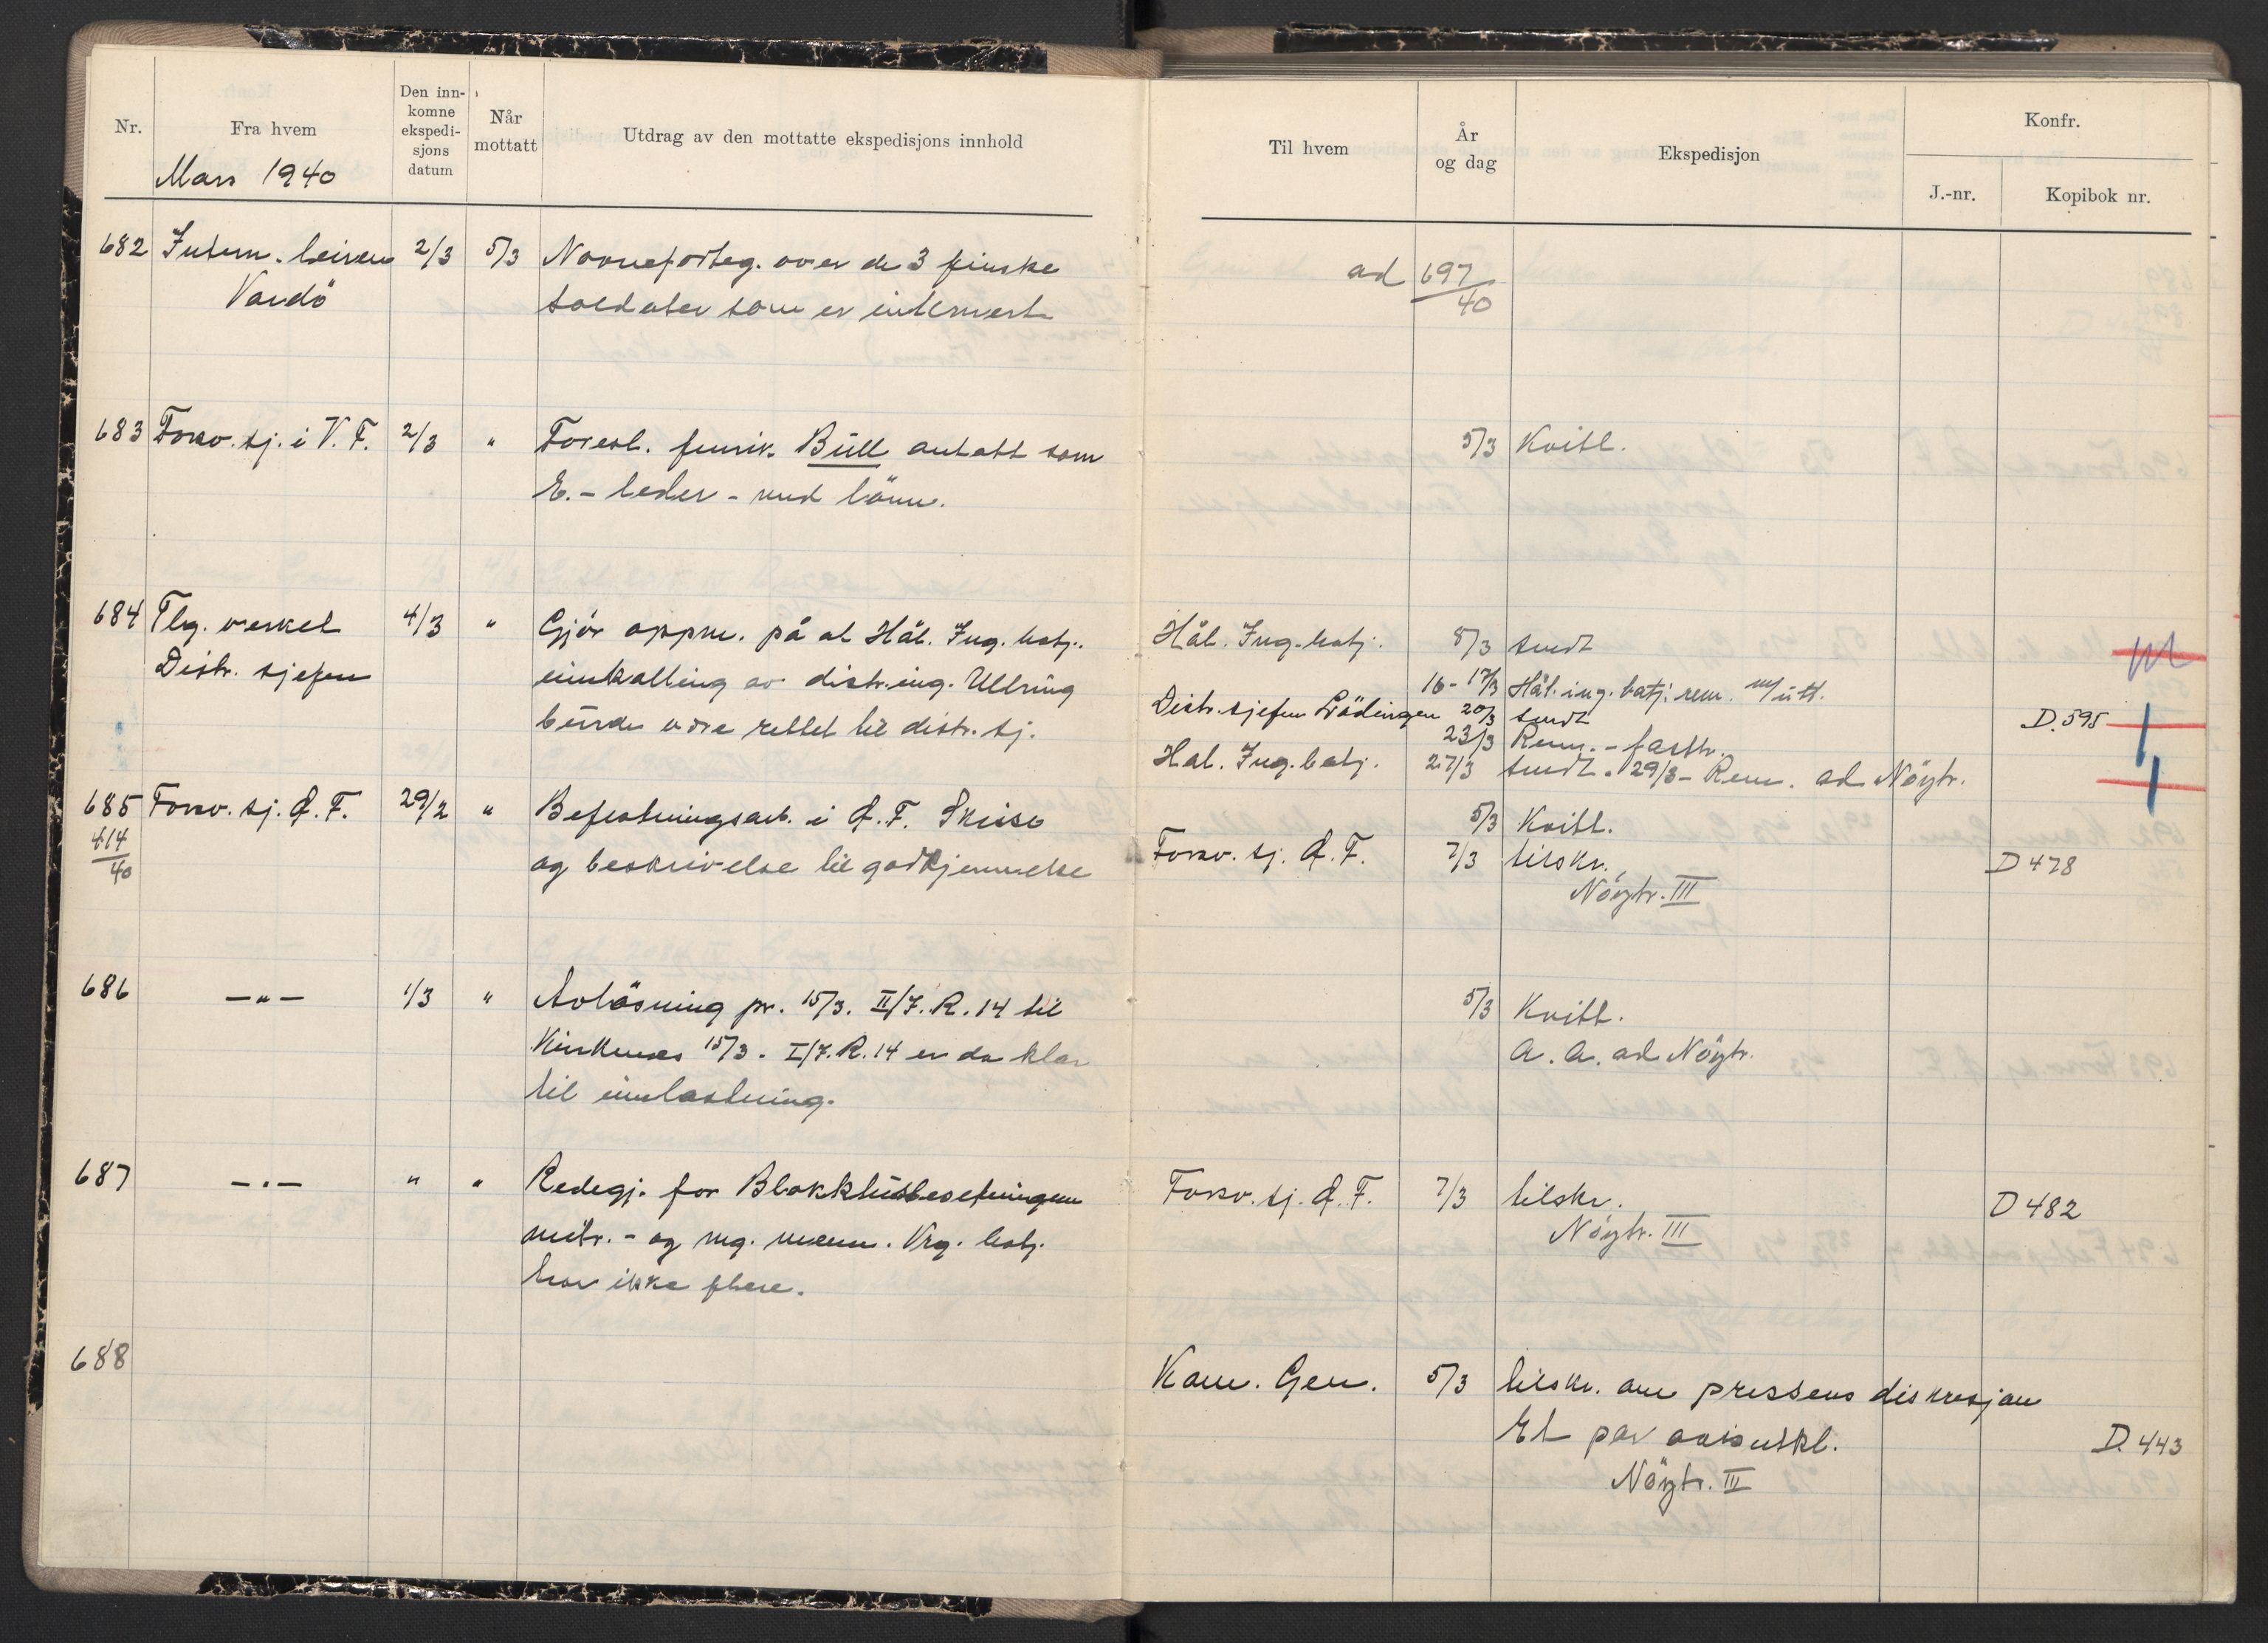 Nr.
Fra hvem
Den inn-
komne
ekspedi-
sjons
datum
Når
mottatt
Utdrag av den mottatte ekspedisjons innhold
Mars 1940
682 Intern. leiren 2/3 5/3 Navneforteg. over de 3 finske
Vardö soldater som er internert
683 Forsv. sj. i V. F. 2/3 " Foresl. fenrik Büll antatt som
E. - leder - med lönn.
684 Tlg. verket 4/3 " Gjör oppm. på at Hål. Ing. batj.
Distr. sjefen innkalling av distr. ing. Ullring
burde være rettet til distr. sj.
685 Forsv. sj. Ö. F. 29/2 " Befestningsarb. i Ö. F. Skisse
414/40 og beskrivelse til godkjennelse
686 — " — 1/3 " Avlösning pr. 15/3. II/I.R. 14 til
Kirkenes 15/3. I/I.R. 14 er da klar
til innlastning.
687 — " — " " Redegj. for Blokkhusbesetningen
mitr. - og mg. menn. Vrg. batj.
har ikke flere.
688
Til hvem
År
og dag
Ekspedisjon
Konfr.
J.-nr.
Kopibok nr.
ad 697/40
5/3 Kvitt.
Hål. Ing. batj. 5/3 sendt
16-17/3 Hål. ing. batj. rem. m/utt.
Distr. sjefen Lödingen 20/3 sendt D. 595
23/3 Rem. -
Hål. Ing. batj. 27/3 sendt. 29/3 - Rem. ad Nöytr.
5/3 Kvitt.
Forsv. sj. Ö. F. 7/3 tilskr. D 478
Nöytr. III
5/3 Kvitt.
a. a. ad Nöytr.
Forsv. sj. Ö. F. 7/3 tilskr. D 482
Nöytr. III
Kom. Gen. 5/3 tilskr. om pressens diskresjon
Et par avisutkl. D. 443
Nöytr. III